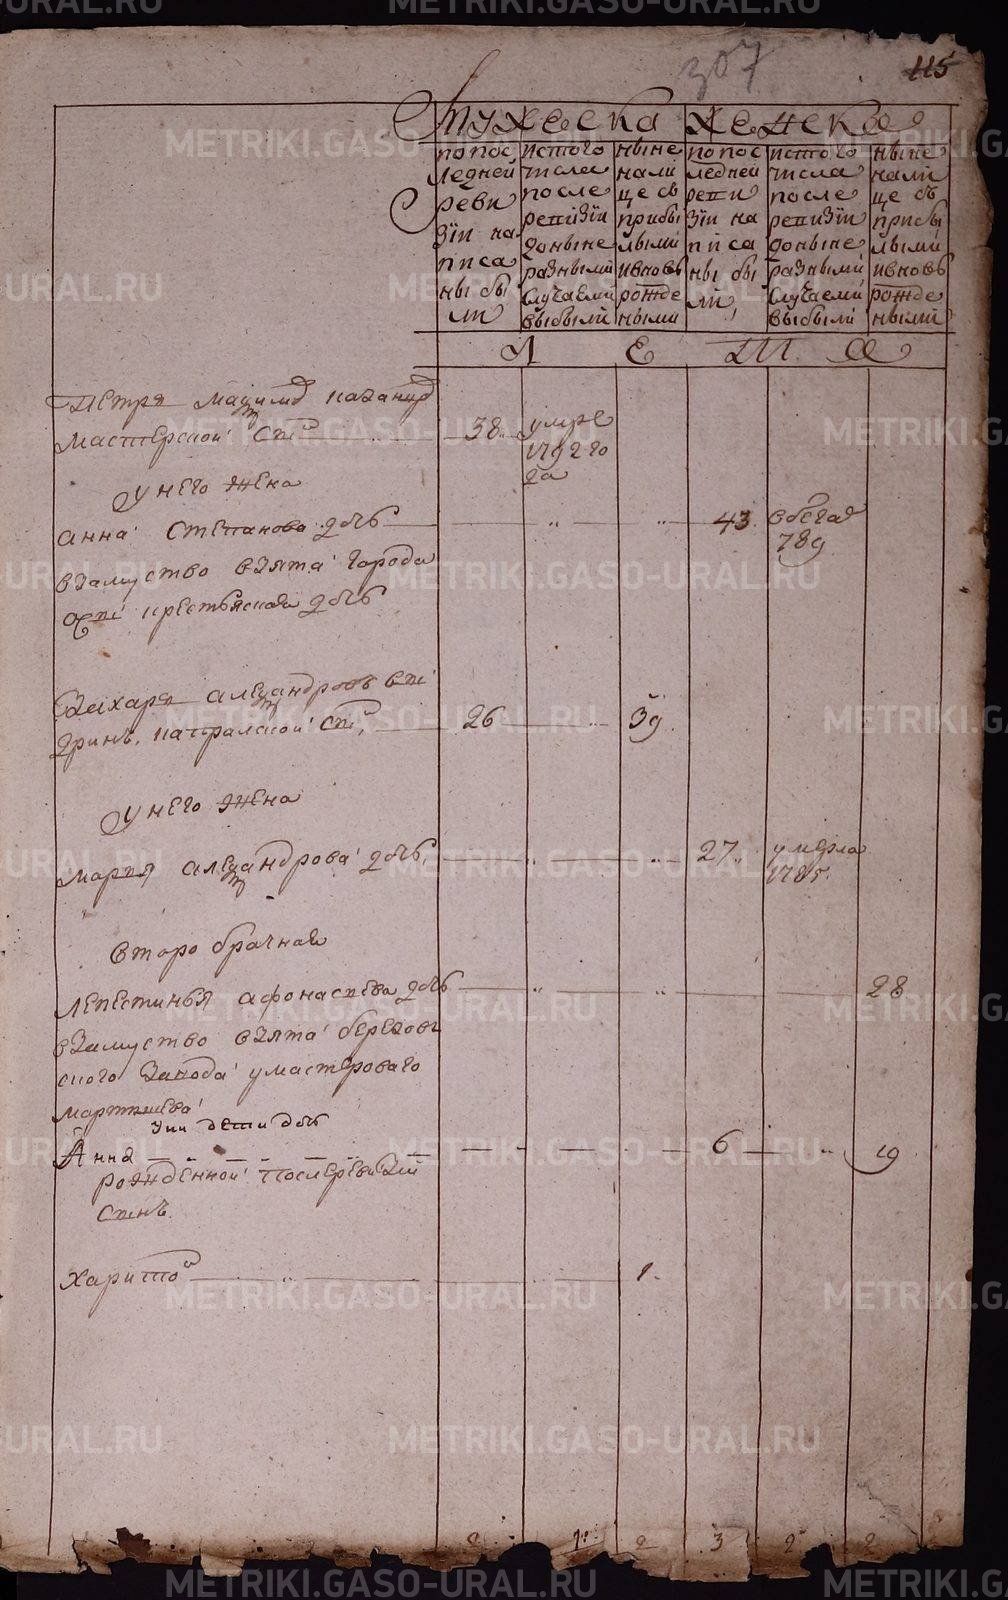 307
115
Мужеска Женска
попос ледней реви зїи на писа ны бы ли
истого числа после ревизїи доныне разными случаеми выбыли
ныне нали це съ прибы лыми ивновь рожде ными
попос ледней реви зїи на писа ны бы ли
истого числа после ревизїи доныне разными случаеми выбыли
ныне нали це съ прибы лыми ивновь рожде ными
Л Е Т А
Петръ
мастерской 38 умре
1792 го
да
у него жена
анна степанова дочь 43 вбегах
789
взамуство взята города
крестьянская дочь
Захаръ александровъ
26 39
у него жена
марья александрова дочь 27 умерла
1785
второ брачная
лепестинья афонасьева дочь 28
взамуство взята березов
ского завода умастероваго
мартышева
уни дети дочь
Анна 6 19
рожденной послеревизїи
сынъ
харитон 1
2 1 2 3 2 2
METRIKI.GASO-URAL.RU